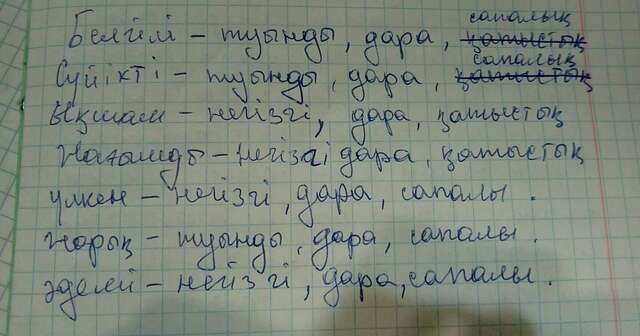 Белгілі – туынды, дара, қатыстық сапалық
Сүйікті – туынды, дара, қатыстық сапалық
Ықшам – негізгі, дара, қатыстық
– негізгі дара, қатыстық
үлкен – негізгі, дара, сапалы.
– туынды, дара, сапалы.
әдемі – негізгі, дара, сапалы.